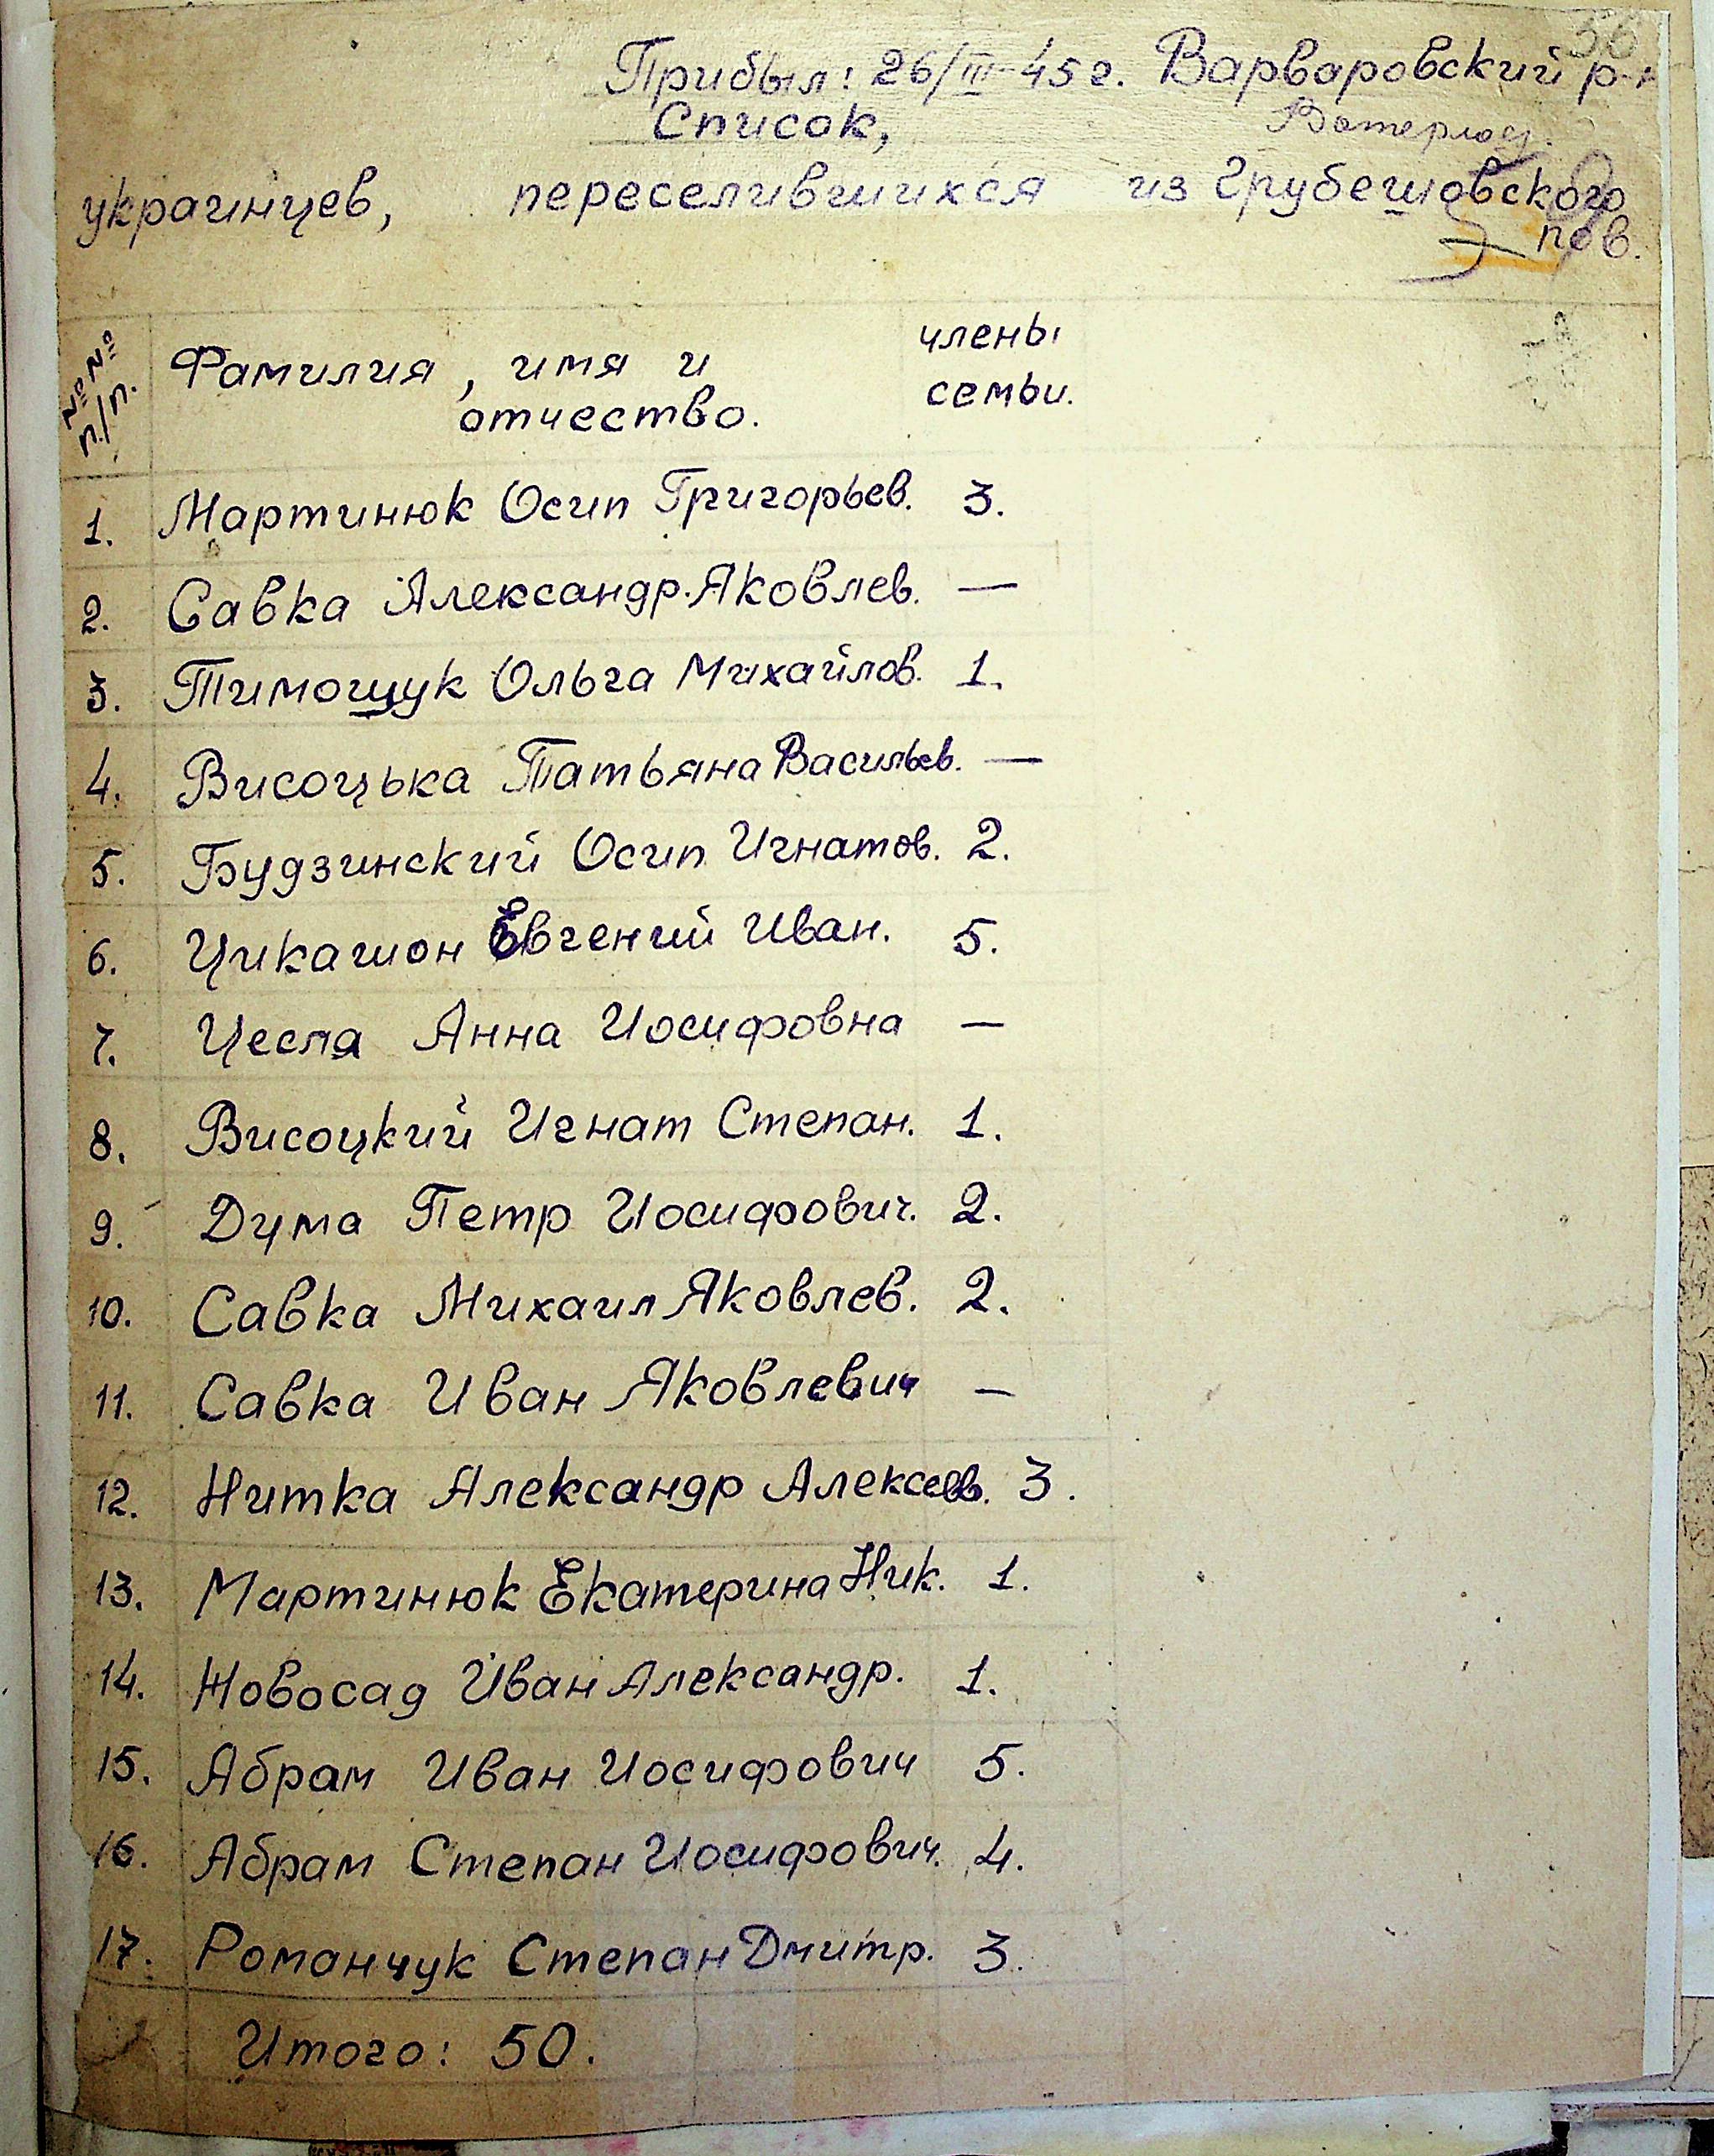 Прибыл: 26/III-45г. Варваровский р-н
Список, Ватерлоо
украинцев, переселившихся из Грубешовского
пов.
№№ п/п. Фамилия, имя и отчество. члены семьи.
1. Мартинюк Осип Григорьев. 3.
2. Савка Александр. Яковлев. —
3. Тимощук Ольга Михайлов. 1.
4. Висоцька Татьяна Васильев. —
5. Будзинский Осип Игнатов. 2.
6. Цикашон Евгений Иван. 5.
7. Цесла Анна Иосифовна —
8. Висоцкий Игнат Степан. 1.
9. Дума Петр Иосифович. 2.
10. Савка Михаил Яковлев. 2.
11. Савка Иван Яковлевич —
12. Нитка Александр Алексеев. 3.
13. Мартинюк Екатерина Ник. 1.
14. Новосад Иван Александр. 1.
15. Абрам Иван Иосифович 5.
16. Абрам Степан Иосифович. 4.
17. Романчук Степан Дмитр. 3.
Итого: 50.